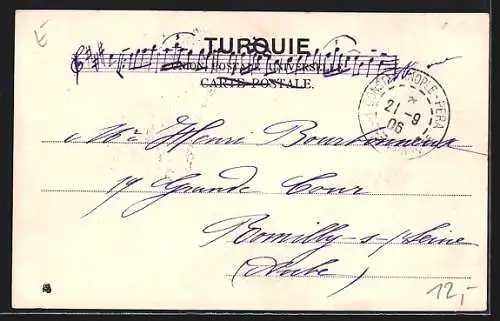 TURQUIE
UNION POSTALE UNIVERSELLE
CARTE POSTALE.
CONSTANTINOPLE-PERA
21-9
06
Mr Henri Bourbonneux
19 Grande Cour
Romilly-s-/Seine
(Aube)
12,-